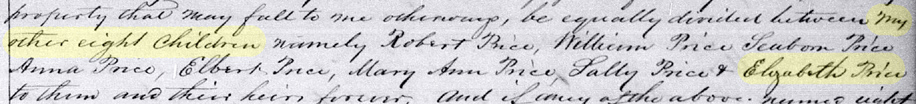 property that may fall to me otherways, be equally divided between my
other eight Children namely Robert Price, William Price Seaborn Price
Anna Price, Elbert Price, Mary Ann Price, Sally Price & Elizabeth Price
to them and their heirs forever. And if any of the above named eight